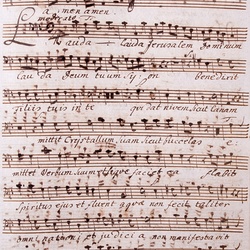 amen amen.
Lauda lauda Jerusalem dominum
lauda deum tuum, sy on benedixit
filiis tuis in te qui dat nivem sicut lanam
mittit Crystallum suam sicut buccelas
mittet Verbum suum
Spiritus ejus et fluent aqvæ non fecit taliter
omni nationi et judicia non manifestavit